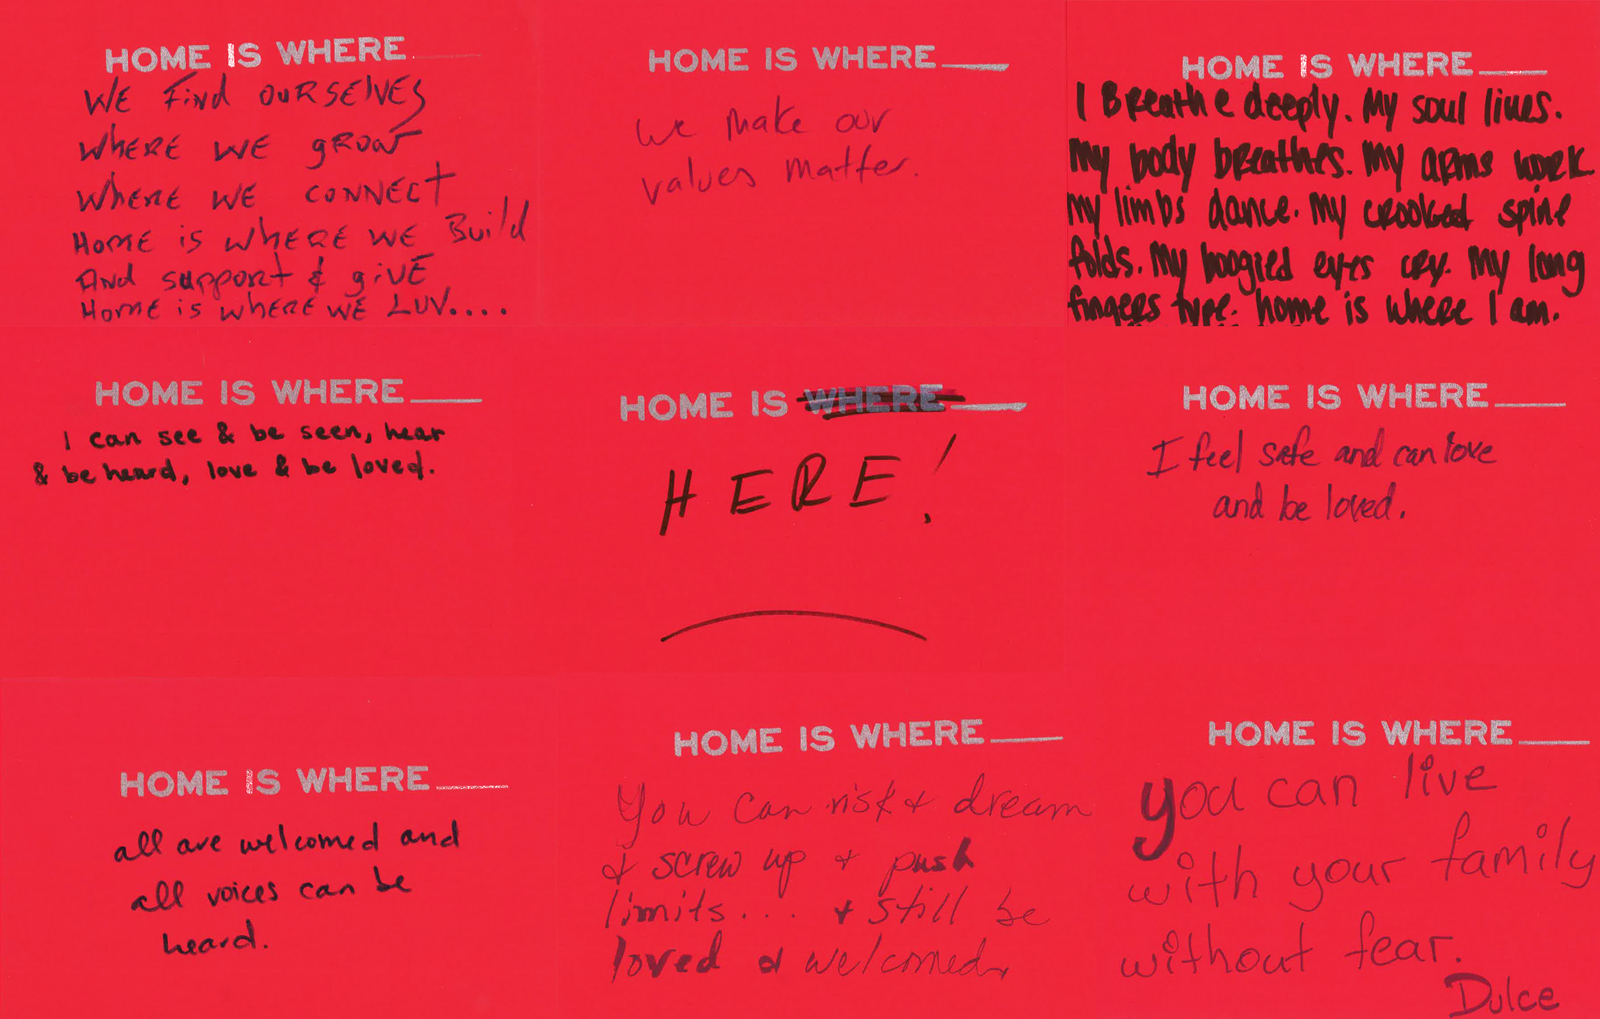 HOME IS WHERE____
WE Find OURSELVES
WHERE WE GROW
WHERE WE CONNECT
HOME is WHERE WE Build
And support & giVE
HOME is WHERE WE LUV....
HOME IS WHERE____
we make our
values matter.
HOME IS WHERE____
I Breathe deeply. My soul lives.
My body breathes. My arms work
My limbs dance. My crooked spine
folds. My boogied eyes cry. My long
fingers type. home is where I am.
HOME IS WHERE____
I can see & be seen, hear
& be heard, love & be loved.
HOME IS WHERE____
HERE!
HOME IS WHERE____
I feel safe and can love
and be loved.
HOME IS WHERE____
all are welcomed and
all voices can be
heard.
HOME IS WHERE____
You can risk & dream
& screw up & push
limits... & still be
loved & welcomed
HOME IS WHERE____
you can live
with your family
without fear.
Dulce